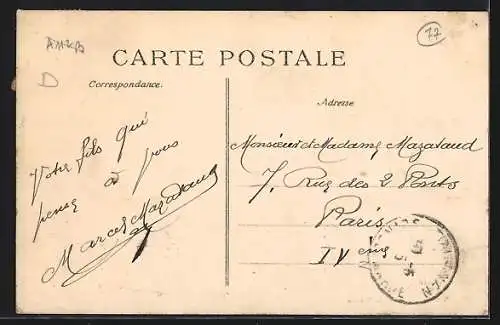 77
D
CARTE POSTALE
Correspondance.
Adresse
Votre fils qui
pense à vous
Marcel Mazataud
Monsieur et Madame Mazataud
7, Rue des 2 Ponts
Paris
IVème